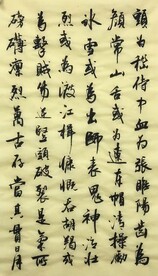 頭為嵇侍中血為張睢陽齒為
顏常山舌或為遼東帽清操厲
冰雪或為出師表鬼神泣壯
烈或為渡江楫慷慨吞胡羯或
為擊賊笏逆豎頭破裂是氣所
磅礴凜烈萬古存當其貫日月